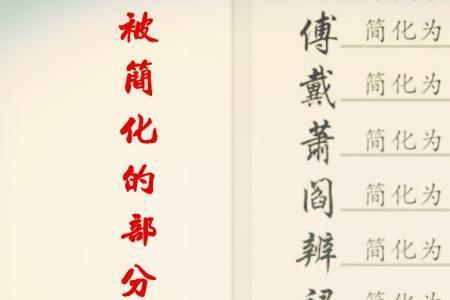 被簡化的部分
傅 简化为
戴 简化为
萧 简化为
阎 简化为
辨 简化为